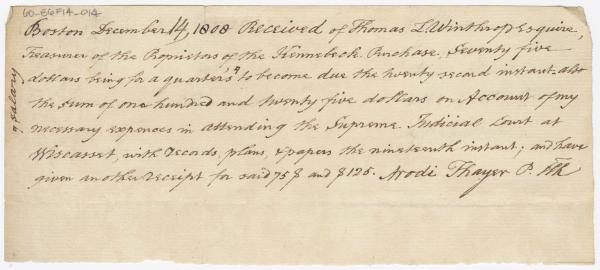 60-EGF14-014
Boston December 14, 1808 Received of Thomas L. Winthrop Esquire,
Treasurer of the Proprietors of the Kennebeck Purchase. Seventy five
dollars being for a quarter's ^ to become due the twenty second instant also
the sum of one hundred and twenty five dollars on Account of my
necessary expences in attending the Supreme Judicial Court at
Wiscasset, with records, plans, & papers the nineteenth instant; and have
given another receipt for said 75$ and $125. Arodi Thayer P. Clk
^ salary